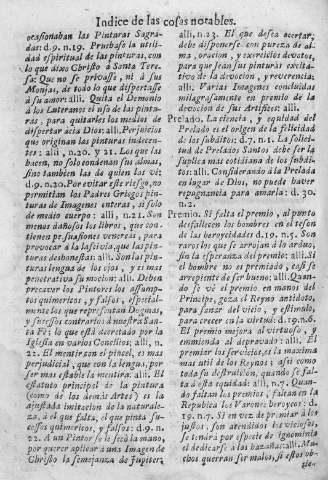 Indice de las cosas notables.
ocasionaban las Pinturas Sagra-
das: d.9. n.19. Pruebase la utili-
dad espiritual de las pinturas, con
lo que dixo Christo à Santa Tere-
sa: Que no se privasse, ni à sus
Monjas, de todo lo que despertasse
à su amor: alli. Quita el Demonio
à los Luteranos el uso de las pintu-
ras, para quitarles los medios de
despertar àcia Dios: alli. Perjuicios
que originan las pinturas indecen-
tes: alli, n.20. y 21. Los que las
hacen, no solo condenan sus almas,
sino tambien las de quien las vè:
d.9. n.20. Por evitar esse riesgo, no
permitian los Padres Griegos pin-
turas de Imagenes enteras, si solo
de medio cuerpo: alli, n.21. Son
menos dañosos los libros, que con-
tienen persuasiones venereas, para
provocar à la lascivia, que las pin-
turas deshonestas: alli. Son las pin-
turas lengua de los ojos, y es mas
penetrativa su mocion: alli. Deben
precaver los Pintores los assump-
tos quimericos, y falsos, especial-
mente los que representan Dogmas,
y sucessos contrarios à nuestra San-
ta Fè; lo que està decretado por la
Iglesia en varios Concilios: alli; n.
22. El mentir con el pincèl, es mas
perjudicial, que con la lengua, por
ser mas estable la mentira: alli. El
estatuto principal de la pintura
(como de las demàs Artes) es la
ajustada imitacion de la naturale-
za, à el que falta, el que pinta su-
cessos quimericos, y falsos: d.9. n.
22. A un Pintor se le secò la mano,
por querer aplicar a una Imagen de
Christo la semejanza de Jupiter,
alli, n.23. El que desea acertar,
debe disponerse con pureza de al-
ma, oracion, y exercicios devotos,
para que sean sus pinturas excita-
tivo de la devocion, y reverencia:
alli. Varias Imagenes concluidas
milagrosamente en premio de la
devocion de sus Artifices: alli.
Prelado. La ciencia, y equidad del
Prelado es el origen de la felicidad
de los subditos: d.7. n.1. La solici-
tud de Prelados Santos debe ser la
suplica mas cotidiana de los subdi-
tos: alli. Considerando à la Prelada
en lugar de Dios, no puede haver
repugnancia para amarla: d. 30.
n.2.
Premio. Si falta el premio, al punto
desfallecen los hombres en el tesòn
de las heroycidades: d.19. n.5. Son
raros los que se arrojan à lo arduo,
sin la esperanza del premio: alli. Si
el hombre no es premiado, casi se
arrepiente de ser bueno: alli. Quan-
do se vè el premio en manos del
Principe, goza el Reyno antidoto,
para sanar del vicio, y estimulo,
para crecer en la virtud: d.19. n.6.
El premio mejora al virtuoso, y
enmienda al depravado: alli. El
premiar los servicios, es la maxima
mas util de los Reynos; assi como
toda su destruicion, quando se fal-
ta à esta equidad: alli, n.7. Quan-
do faltan los premios, faltan en la
Republica los Varones heroycos: d.
19. n.7. Si en vez de premiar à los
justos, son atendidos los viciosos,
se tendrà por especie de ignominia
el dedicarse à los aciertos: alli. Mu-
chos querran ser malos, si estos ob-